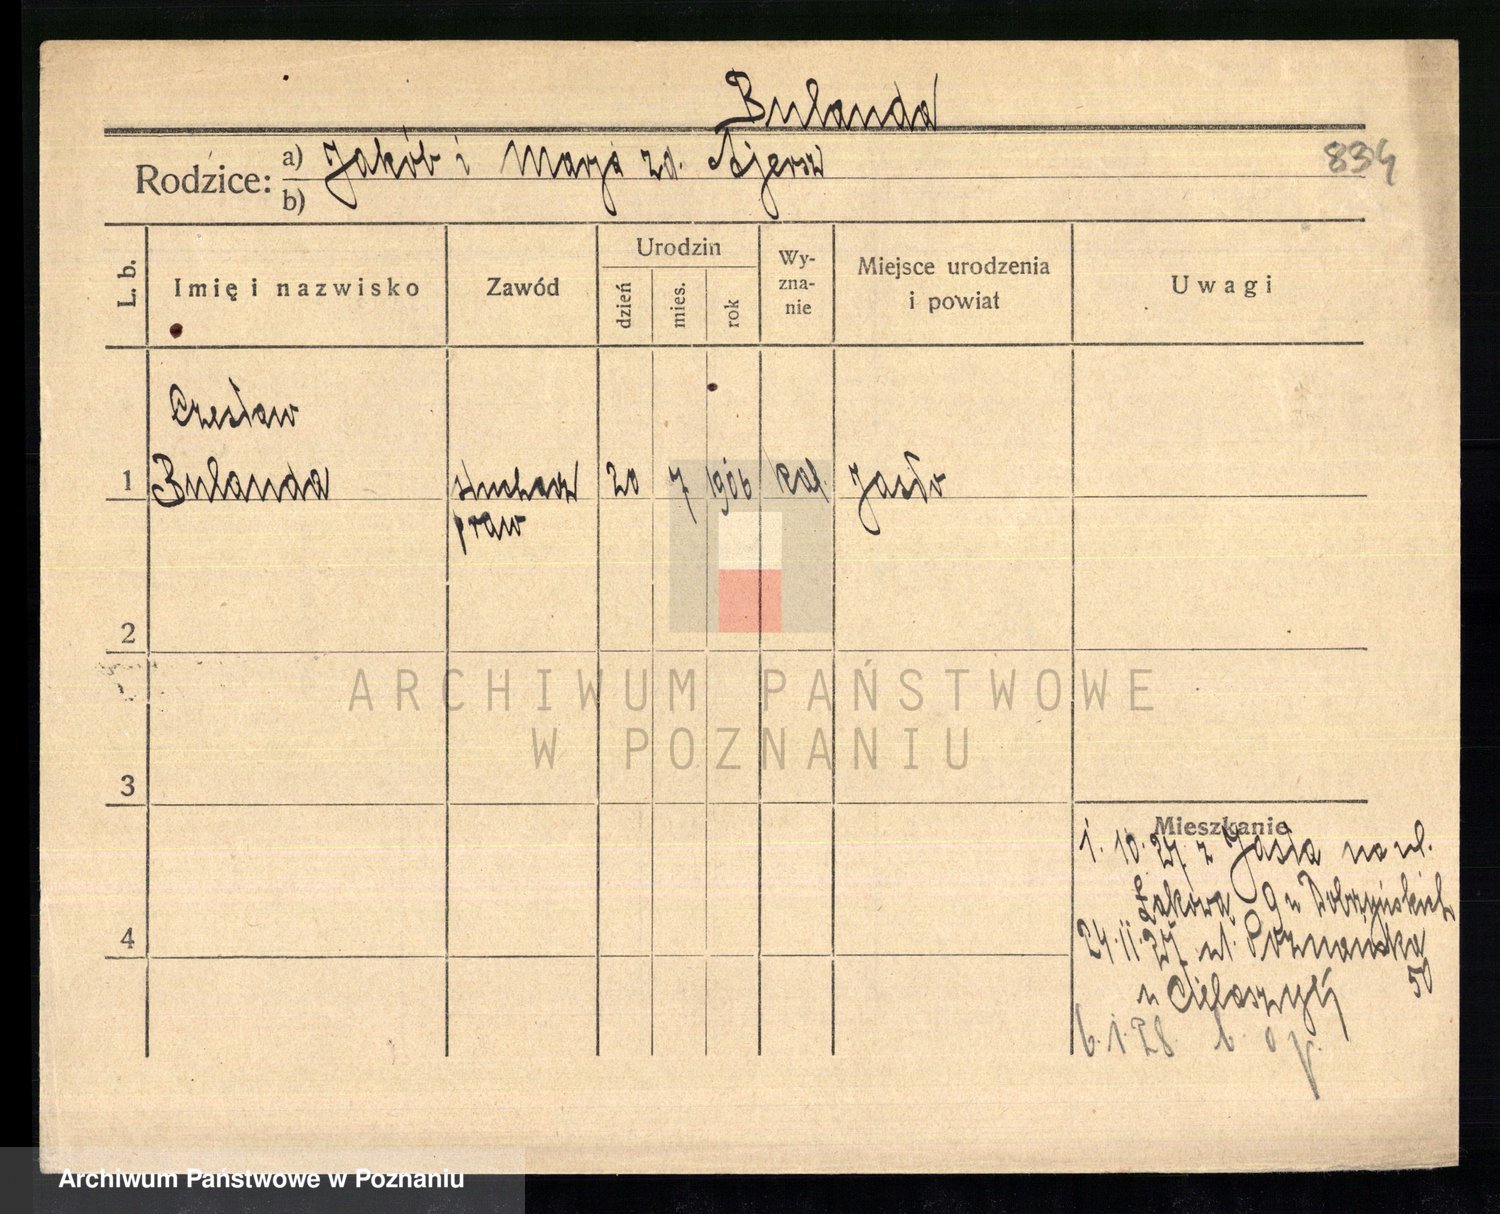 Bulanda
Rodzice: a) Jakób i Marja zd.
b)
834
L. b.
Imię i nazwisko
Zawód
Urodzin
dzień
mies.
rok
Wy-
zna-
nie
Miejsce urodzenia
i powiat
Uwagi
Czesław
1 Bulanda słuchacz 20 7 1906 kat. Jasło
praw
2
ARCHIWUM PAŃSTWOWE
W POZNANIU
3
Mieszkanie
1. 10. 27. z Jasła na ul.
Łąkową 9 u Dobrzyńskich
4
24. 11. 27. ul. Poznańska
50
u
6. 1. 28
Archiwum Państwowe w Poznaniu